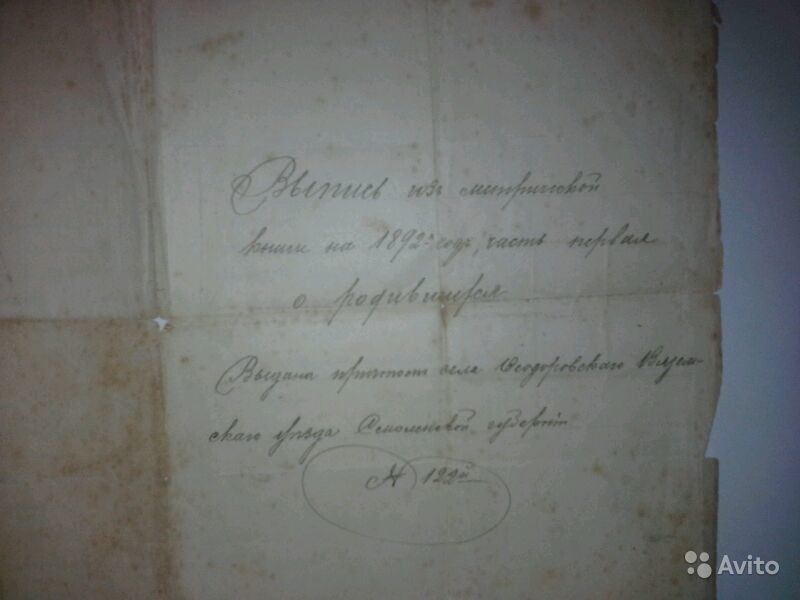 Выпись изъ метрической
книги на 1892й годъ, часть первая
о родившихся
Выдана причтомъ села Ѳеодоровскаго Вязем-
скаго уѣзда Смоленской губерніи
№ 122й
Avito